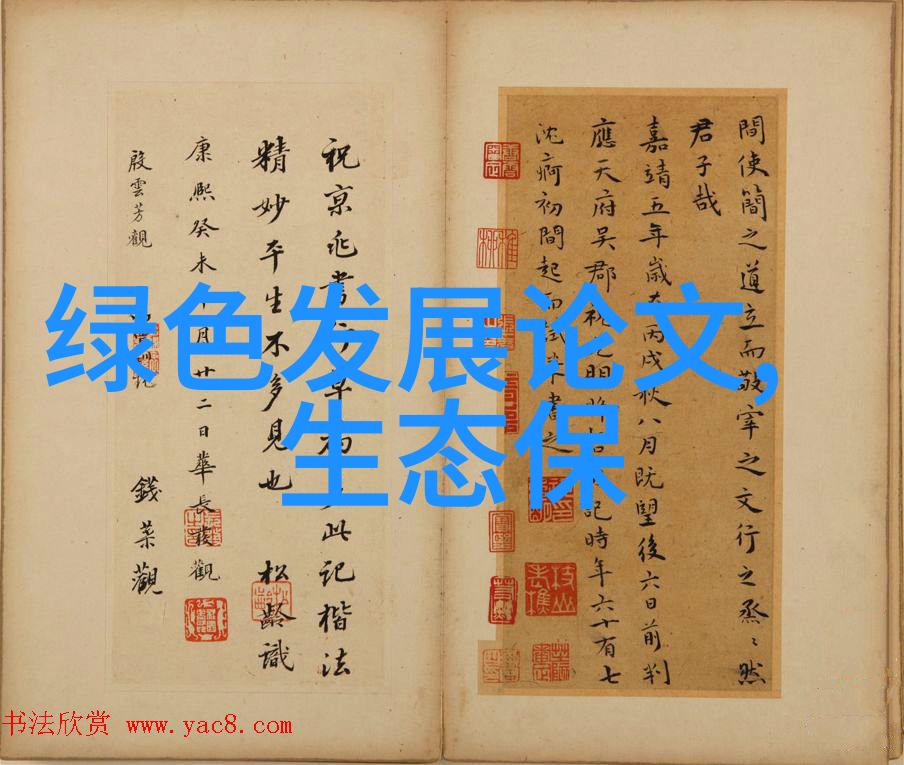 绿色发展论文,
生态保
間使簡之道立而敬宰之文行之烝〻然
君子哉
嘉靖五年歲在丙戌秋八月既望後六日前判
應天府吳郡祝允明 記時年六十有七
沈痾初間起而試筆書之
祝京兆書 草 此記楷法
精妙平生不多見也 松齡識
康熙癸未 月廿二日華長發觀
殷雲芳觀
錢 觀
书法欣赏 www.yac8.com